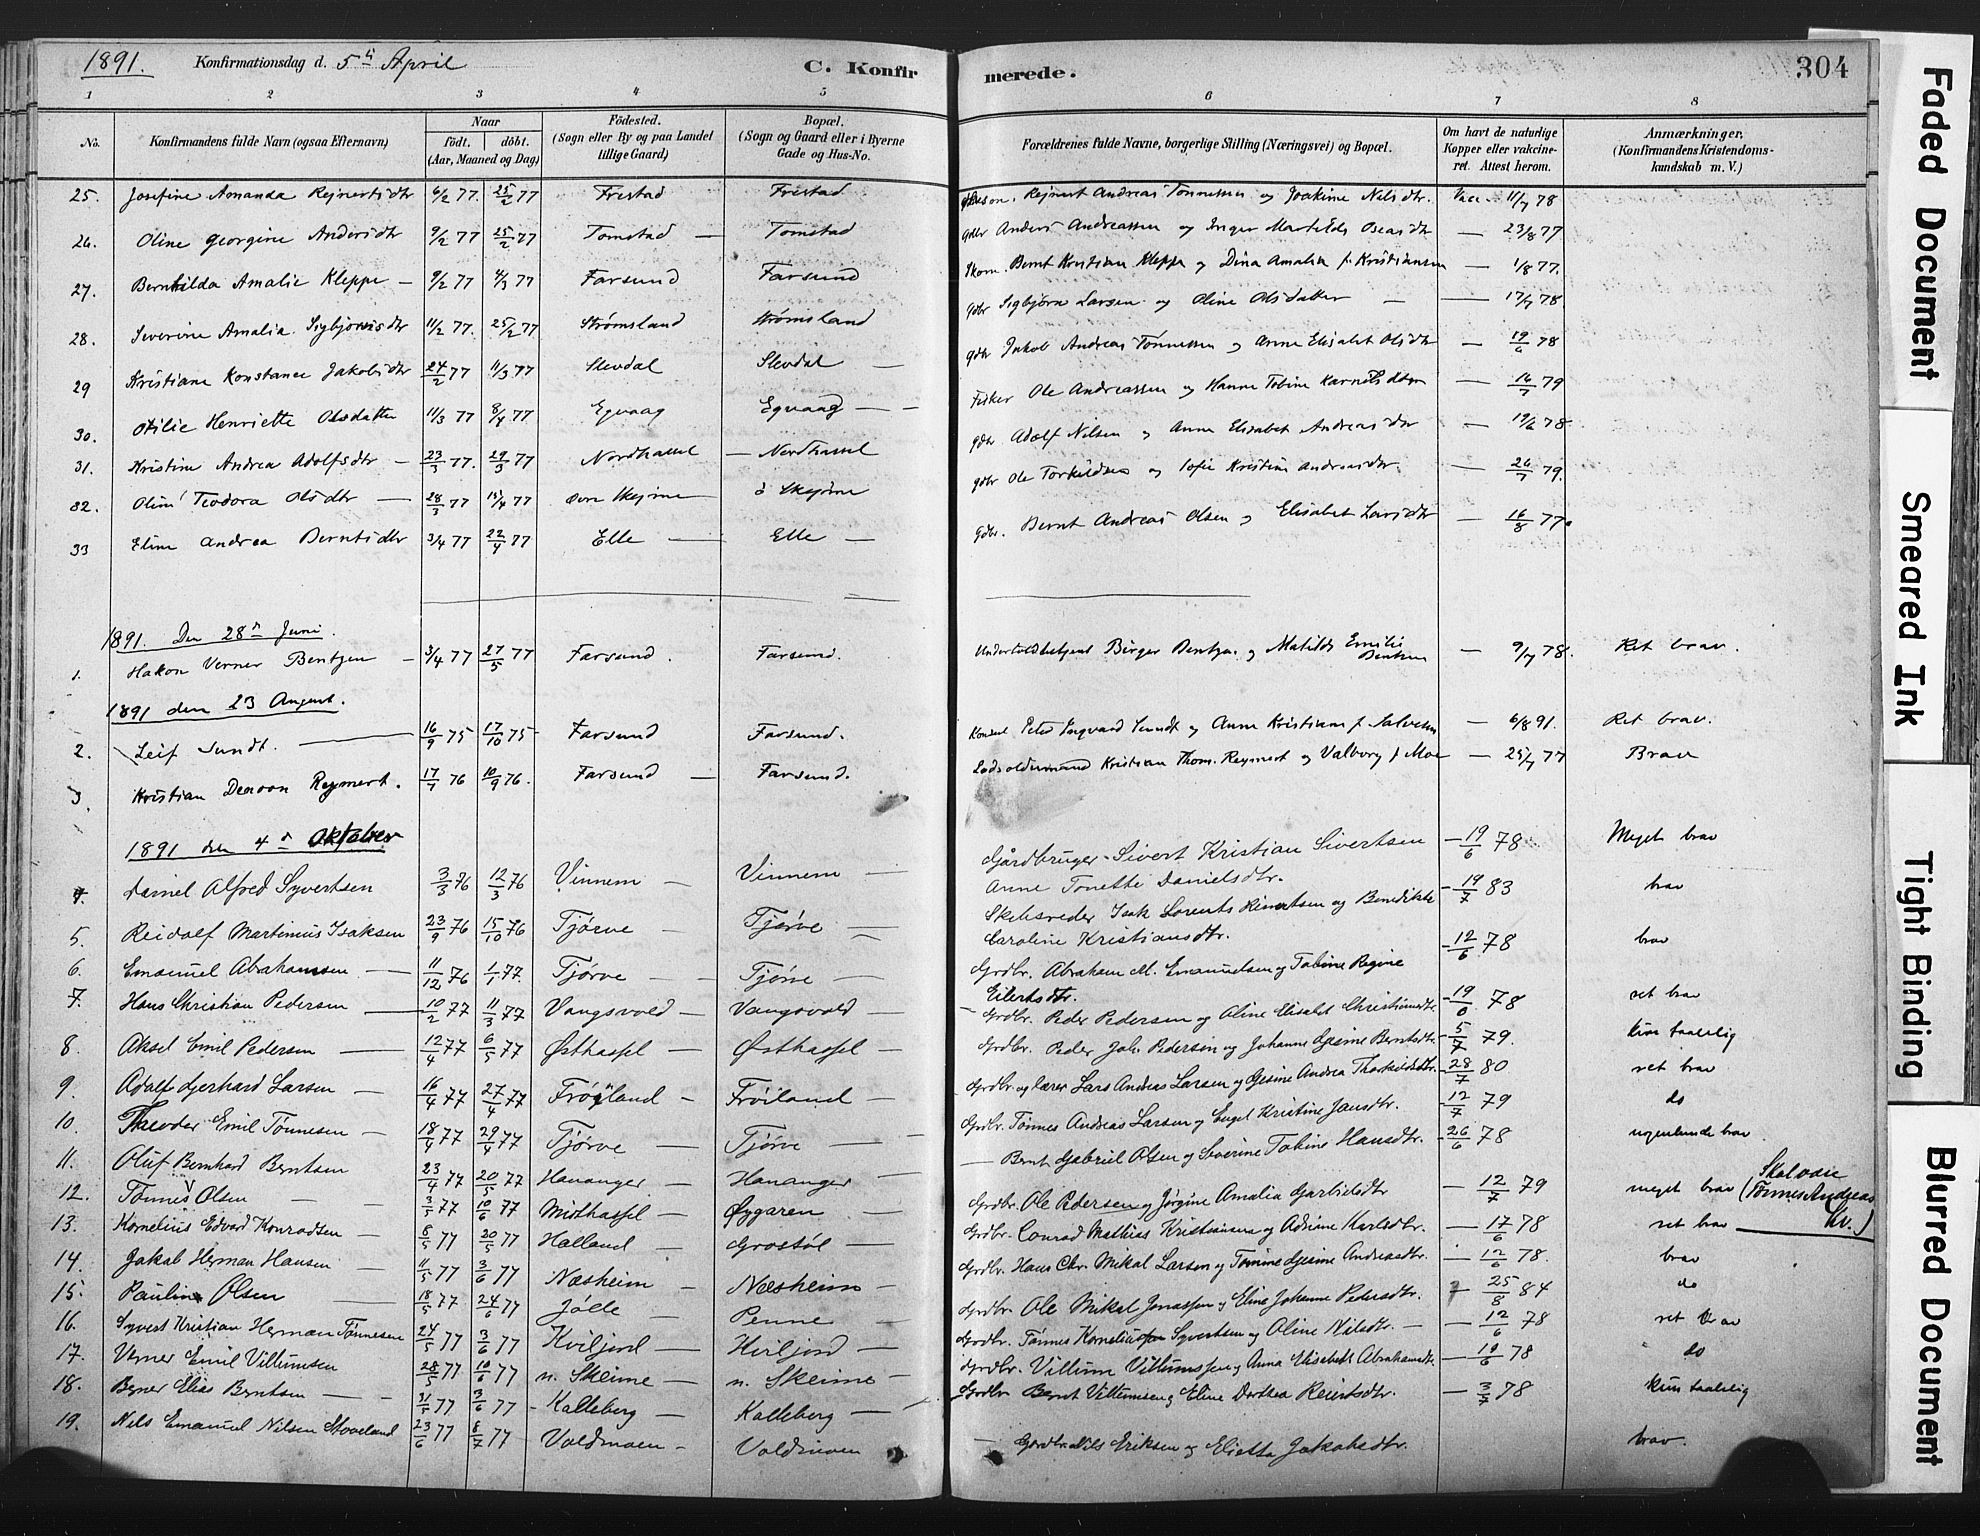 1891. Konfirmationsdag d. 5te April C. Konfirmerede. 304
1 2 3 4 5 6 7 8
No. Konfirmandens fulde Navn (ogsaa Efternavn) Naar födt. döbt. (Aar, Maaned og Dag) Födested. (Sogn eller By og paa Landet tillige Gaard) Bopæl. (Sogn og Gaard eller i Byerne Gade og Hus-No. Forældrenes fulde Navne, borgerlige Stilling (Næringsvei) og Bopæl. Om havt de naturlige Kopper eller vakcineret. Attest herom. Anmærkninger, (Konfirmandens Kristendomskundskab m. V.)
25. Josefine Amanda Rejnertsdtr 6/2 77. 25/2 77 Frestad Frestad Rejnert Andreas Tønnessen og Joakime Nilsdtr. Vacc. 11/7 78
26. Oline Georgine Andersdtr 9/2 77 25/2 77 Tomstad — Tomstad gdbr Anders Andreassen og Inger Martilde Oseasdtr — 23/8 77
27. Bernhilda Amalie Kleppe — 9/2 77 4/3 77 Farsund Farsund Skom. Bernt Kristian Kleppe og Dina Amalia f. Kristiansen — 1/8 77.
28. Severine Amalia Sigbjørnsdtr 11/2 77. 25/2 77 Strømsland Strømsland gdbr Sigbjørn Larsen og Oline Olsdatter — 17/7 78
29 Kristiane Konstance Jakobsdtr 24/2 77 11/3 77 Slevdal Slevdal — gdbr Jakob Andreas Tønnessen og Anne Elisabet Olsdtr — 19/6 78
30. Otilie Henriette Olsdatter 11/3 77 8/4 77 Egvaag Egvaag — Fisker Ole Andreassen og Hanne Tobine Karnelsdtr — 16/7 79
31. Kristine Andrea Adolfsdtr — 23/3 77. 29/3 77 Nordhassel — Nordhassel gdbr Adolf Nilsen og Anne Elisabet Andreasdtr — 19/6 78
32. Oline Teodora Olsdtr — 28/3 77 15/4 77 øvre Skejme ø Skejme gdbr Ole Torkildsen og Sofie Kristine Andreasdtr. — 26/7 79.
33 Eline Andrea Berntsdtr 3/4 77 22/4 77 Elle — Elle — gdbr. Bernt Andreas Olsen og Elisabet Larsdtr — 16/8 77.
1891. Den 28de Juni.
1. Hakon Verner Bentzen — 3/4 77 27/5 77 Farsund. Farsund. Undertoldbetjent Birger Bentzen og Matilde Emilie Bentzen — 9/7 78. Ret brav.
1891 den 23 August.
2. Leif Sundt. — 16/9 75 17/10 75 Farsund Farsund. Konsul Peter Ingvard Sundt og Anne Kristiane f. Salvesen — 6/8 91. Ret brav.
3. Kristian Deroon Reymert. 17/7 76 10/9 76. Farsund — Farsund. Lodsoldermand Kristian Thom. Reymert og Valborg f Moe — 25/7 77 Brav
1891 den 4de Oktober
4. Daniel Alfred Syvertsen 3/3 76 12/3 76 Vinnem — Vinnem — Gårdbruger Sivert Kristian Sivertsen Anne Tonette Danielsdtr. — 19/6 78 Meget brav
5. Reidolf Martinius Isaksen 23/9 76 15/10 76 Tjørve — Tjørve — Skibsreder Isak Lorents Reinertsen og Benedikte Caroline Kristiansdtr. — 19/7 83 brav
6. Emanuel Abrahamsen — 11/12 76 1/1 77. Tjørve — Tjørve — Grdbr. Abraham M. Emanuelsen og Tobine Regine Eilertsdtr. — 12/6 78 brav
7. Hans Christian Pedersen — 10/2 77 11/3 77 Vangsvold — Vangsvold — Grdbr. Peder Pedersen og Aline Elisabet Christiansdtr. — 19/6 78 ret brav
8. Aksel Emil Pedersen — 12/4 77 6/5 77 Østhassel — Østhassel — Grdbr. Peder Joh. Pedersen og Johanne Gjesine Berntsdtr. — 5/7 79. kun taalelig
9. Adolf Gerhard Larsen — 16/4 77 27/4 77 Frøiland — Frøiland — Grdbr. og lærer Lars Andreas Larsen og Gesine Andrea Thorkildsdtr. — 28/7 80 ret brav
10. Theodor Emil Tønnesen — 18/4 77 29/4 77 Tjørve — Tjørve — Grdbr. Tønnes Andreas Larsen og Engel Kristine Jansdtr. — 12/7 79 do
11. Oluf Bernhard Berntsen 23/4 77 20/5 77 Hananger — Hananger — — Bernt Gabriel Olsen og Severine Tobine Hansdtr. — 26/6 78 nogenlunde brav
12. Tønnes Olsen — 3/5 77 10/6 77 Midthassel — Øygaren — Grdbr. Ole Pedersen og Jørgine Amalia Gabrielsdtr — 12/7 79 meget brav (Skal være Tønnes Andreas Kv.)
13. Kornelius Edvard Konradsen — 8/5 77 20/5 77 Halland — Grostøl — Grdbr. Conrad Mathias Kristiansen og Adrine Karlsdtr. — 17/6 78 ret brav
14. Jakob Herman Hansen — 11/5 77 3/6 77 Næsheim — Næsheim — Grdbr. Hans Chr. Mikal Larsen og Tomine Gjesine Andreasdtr. — 12/6 78. brav
15. Paulin Olsen — 18/5 77 24/6 77 Jølle — Penne — Grdbr. Ole Mikal Jonassen og Eline Johanne Pedersdtr. — 25/8 84 do
16. Syvert Kristian Herman Tønnesen 24/5 77 3/6 77 Kviljord — Kviljord — Grdbr. Tønnes Kornelius Syvertsen og Oline Nilsdtr. — 12/6 78 ret brav
17. Verner Emil Villumsen 28/5 77 10/6 77 n. Skeime — n. Skeime — Grdbr. Villum Villumsen og Anna Elisabeth Abrahamsdtr. — 19/6 78 do
18. Berner Elias Berntsen — 31/5 77 3/6 77 Kalleberg — Kalleberg — Grdbr Bernt Villumsen og Eline Dorthea Reiersdtr. — 3/7 78 kun taalelig
19. Nils Emanuel Nilsen Stoveland 23/6 77 8/7 77 Voldmoen — Voldmoen — Grdbr. Nils Eriksen og Elietta Jakobsdtr. brav.
Faded Document
Smeared Ink
Tight Binding
Blurred Document